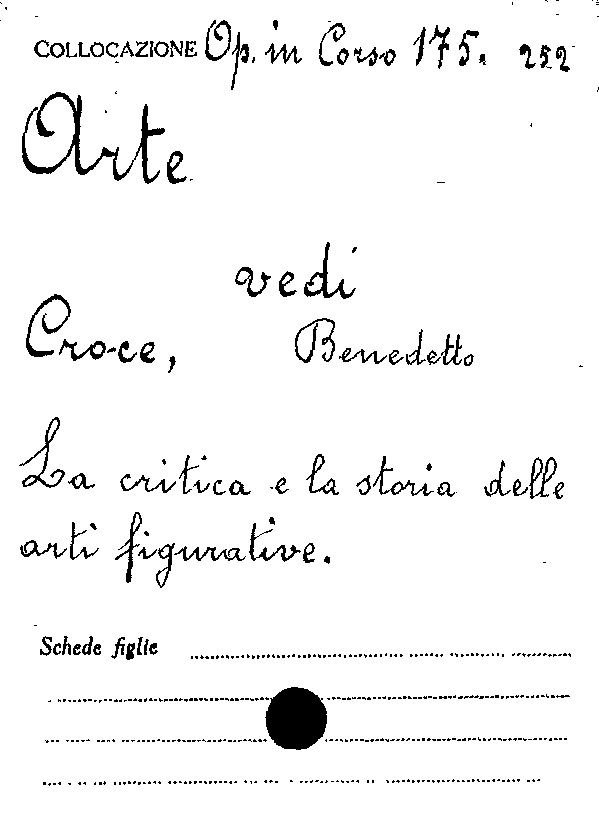 COLLOCAZIONE Op. in Corso 175. 252
Arte
vedi
Croce, Benedetto
La critica e la storia delle
arti figurative.
Schede figlie